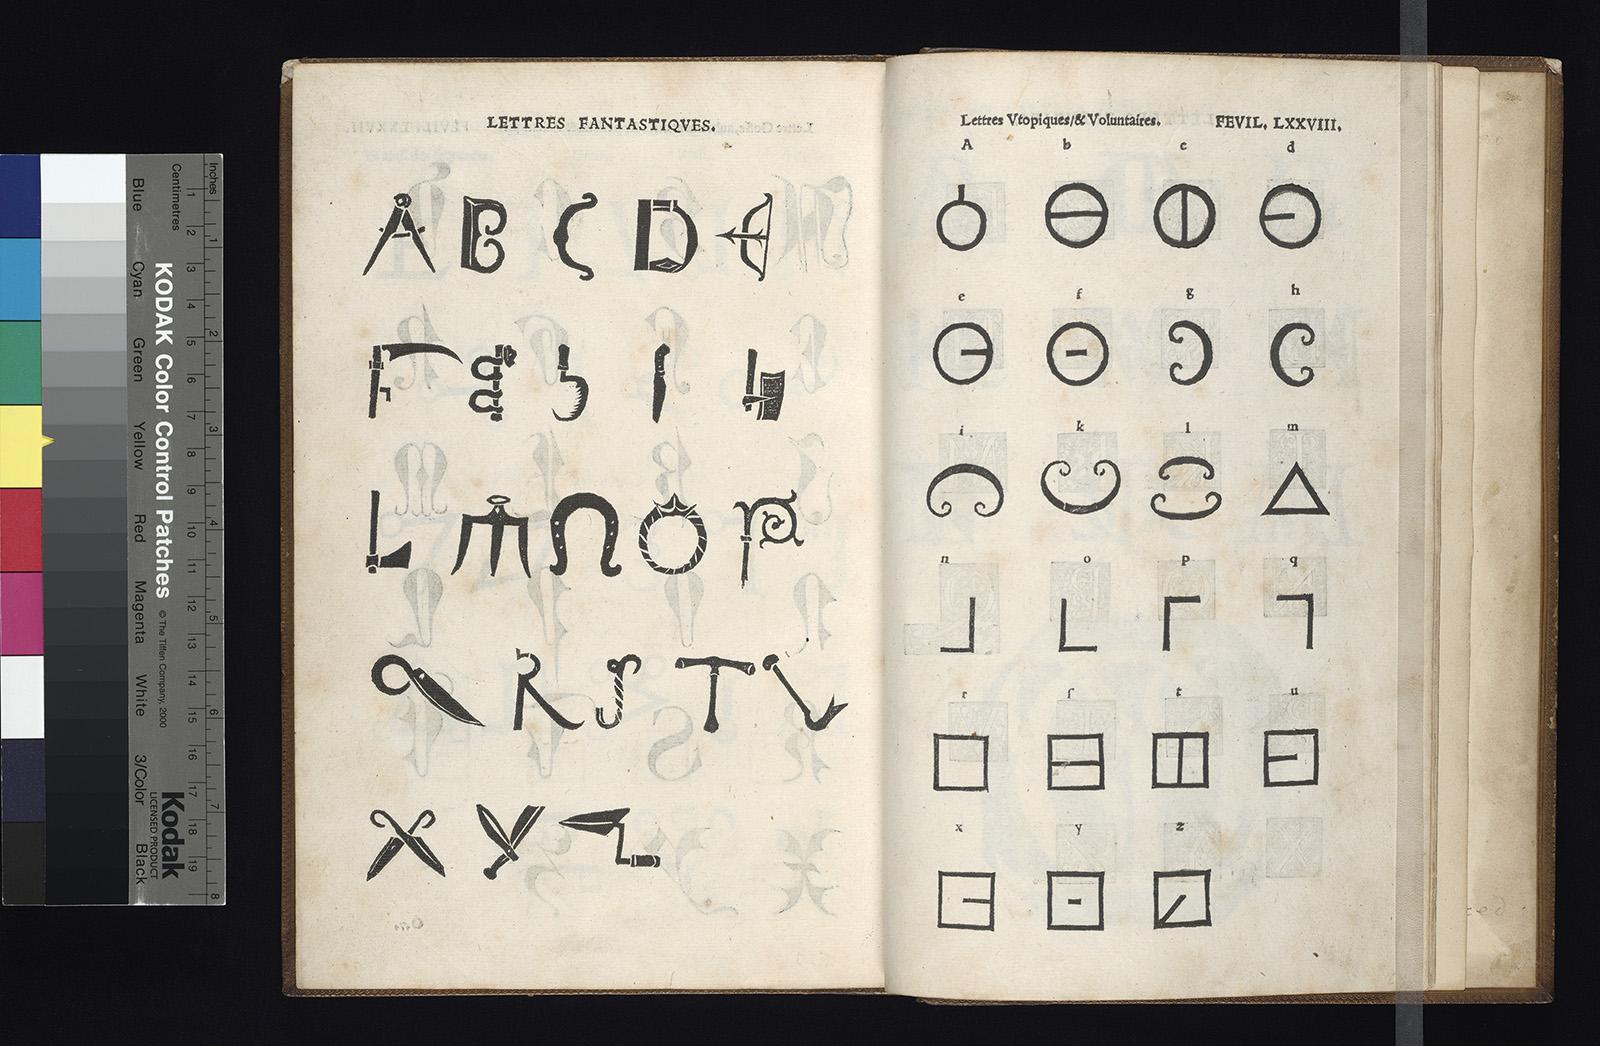 LETTRES FANTASTIQVES.
A B C D E
F G H I K
L M N O P
Q R S T V
X Y Z
Lettres Vtopiques/& Voluntaires. FEVIL, LXXVIII.
A b c d
e f g h
i k l m
n o p q
r ſ t u
x y z
Inches
Centimetres
1 2 3 4 5 6 7 8
1 2 3 4 5 6 7 8 9 10 11 12 13 14 15 16 17 18 19
KODAK Color Control Patches © The Tiffen Company, 2000
Kodak
LICENSED PRODUCT
Blue Cyan Green Yellow Red Magenta White 3/Color Black